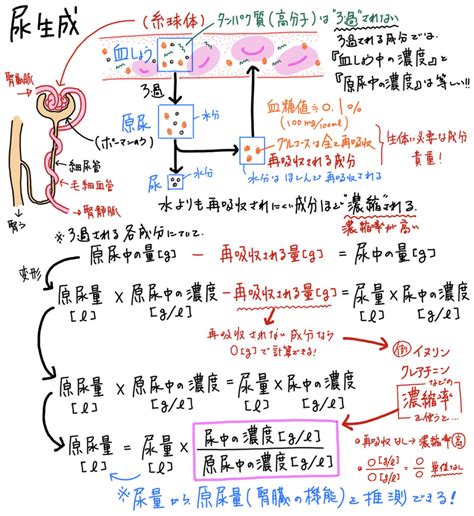 尿生成
(糸球体)
タンパク質(高分子)は"ろ過"されない
ろ過される成分では、
『血しょう中の濃度』と
『原尿中の濃度』は等しい!!
血しょう
腎動脈
ろ過
(ボーマンのう)
原尿
水分
血糖値≒0.1%
(100mg/100ml)
グルコースは全て再吸収
再吸収される成分
水分はほとんど再吸収される
生体に必要な成分
貴重!
尿
水分
細尿管
毛細血管
腎静脈
腎う
水よりも再吸収されにくい成分ほど"濃縮"される
濃縮率が高い
※ろ過される各成分について、
原尿中の量[g] − 再吸収される量[g] = 尿中の量[g]
変形
原尿量[l] × 原尿中の濃度[g/l] − 再吸収される量[g] = 尿量[l] × 尿中の濃度[g/l]
再吸収されない成分なら
0[g]で計算できる!
例 イヌリン
クレアチニン
などの
濃縮率
を使うと…
原尿量[l] × 原尿中の濃度[g/l] = 尿量[l] × 尿中の濃度[g/l]
・再吸収なし→濃縮率高
・○[g/l]/○[g/l] = ○/○ 単位なし
原尿量[l] = 尿量[l] × 尿中の濃度[g/l]/原尿中の濃度[g/l]
※尿量から原尿量(腎臓の機能)を推測できる!